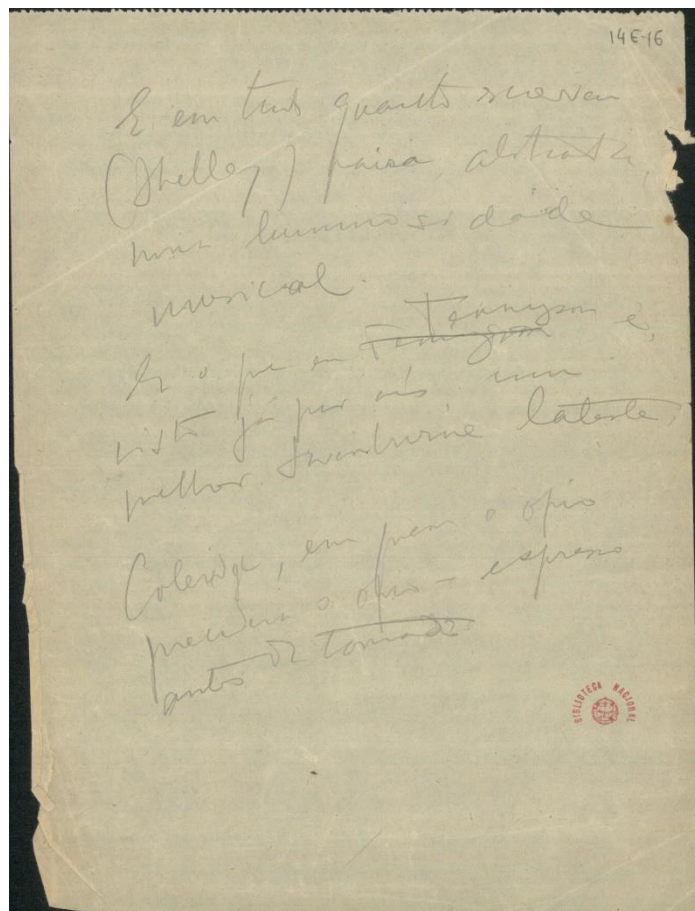 14E-16
E em tudo quanto escreveu
(Shelley) paira, abstracta,
numa luminosidade
musical.
E o que em Tennyson é,
visto já por nós um
melhor Swinburne latente.
Coleridge, em quem o opio
precedeu o opio — expresso
antes de tomado
BIBLIOTECA NACIONAL